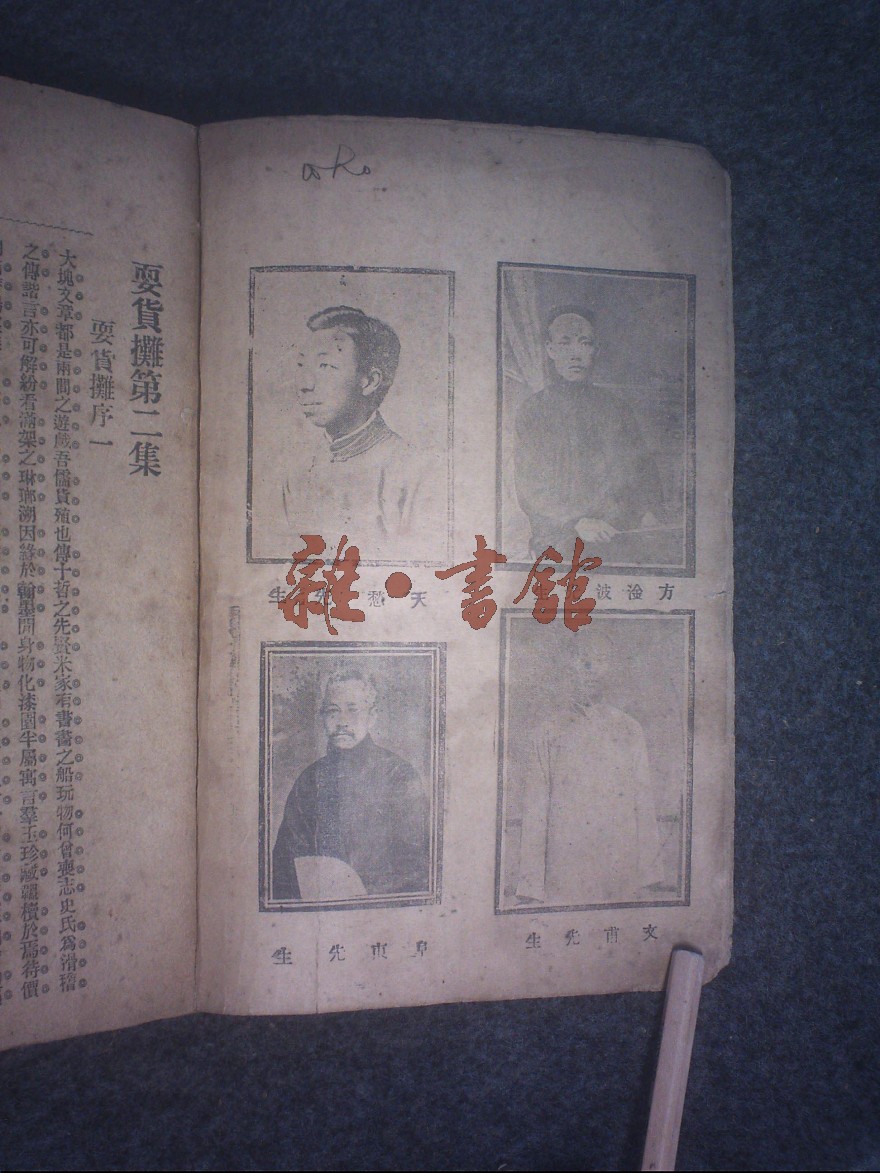 耍貨攤第二集
耍貨攤序一
大塊文章都是兩間之遊戲吾儒貨殖也傳十哲之先賢米家有書畫之船玩物何曾喪志史氏為滑稽
之傳諧言亦可解紛看滿架之琳瑯溯因緣於翰墨閒身物化漆園半屬寓言羣玉珍藏韞櫝於焉待價
方淦波 生
天愁 先生
文甫先生
阜東先生
雜·書館